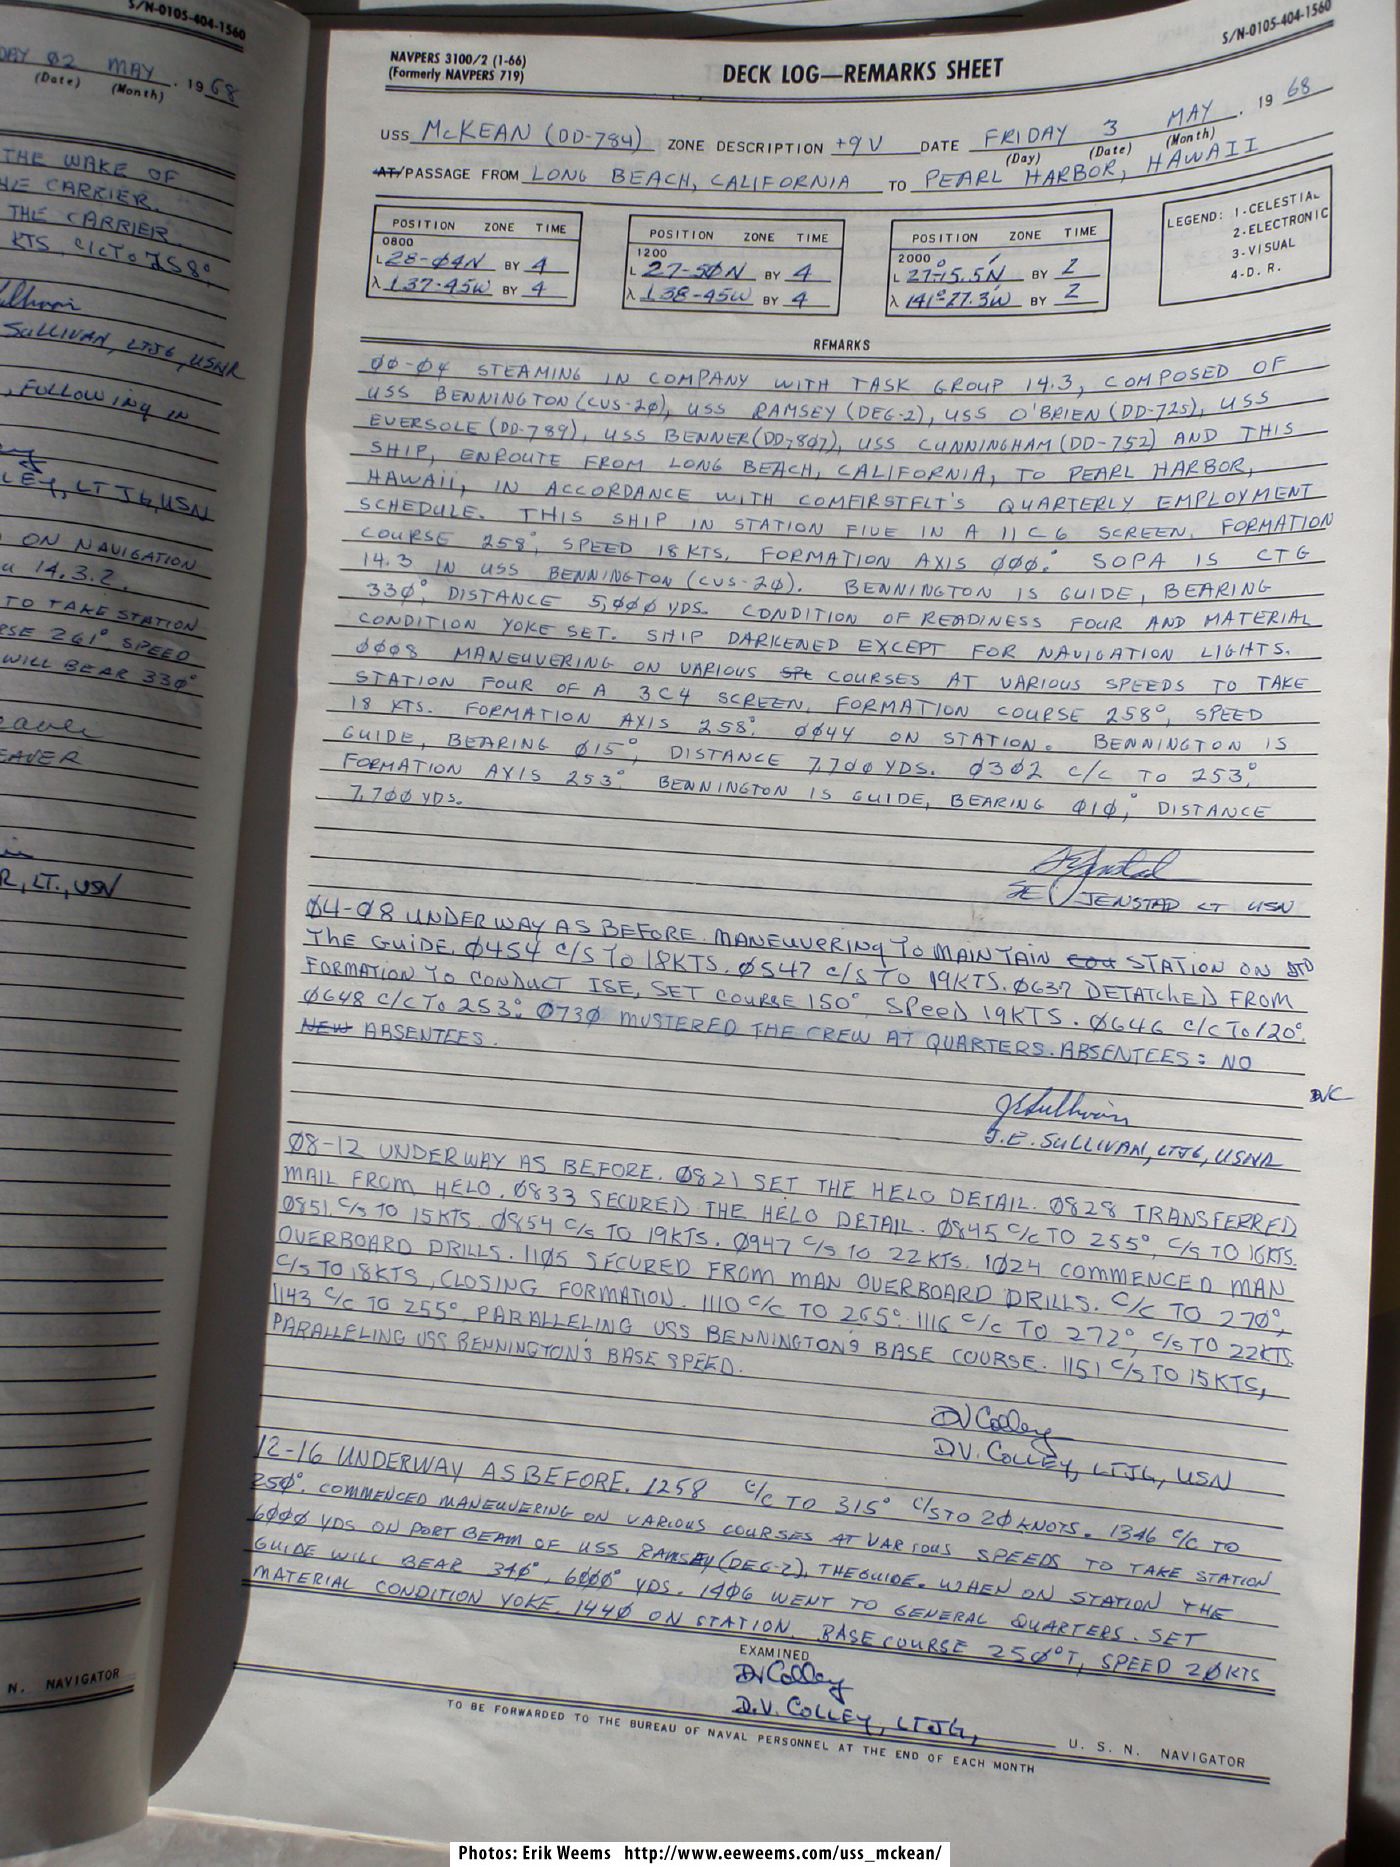 S/N-0105-404-1560
DAY 02 MAY . 1968
(Date) (Month)
THE WAKE OF
THE CARRIER.
THE CARRIER.
KTS, C/C TO 258°.
SULLIVAN, LTJG, USNR
, FOLLOWING IN
LEY, LTJG, USN
ON NAVIGATION
14.3.2.
TO TAKE STATION
RSE 261° SPEED
WILL BEAR 330°
EAVER
R, LT., USN
N. NAVIGATOR
NAVPERS 3100/2 (1-66)
(Formerly NAVPERS 719)
S/N-0105-404-1560
DECK LOG—REMARKS SHEET
USS McKEAN (DD-784) ZONE DESCRIPTION +9V DATE FRIDAY 3 MAY . 19 68
(Day) (Date) (Month)
AT/PASSAGE FROM LONG BEACH, CALIFORNIA TO PEARL HARBOR, HAWAII
POSITION ZONE TIME
0800
L 28-04N BY 4
λ 137-45W BY 4
POSITION ZONE TIME
1200
L 27-50N BY 4
λ 138-45W BY 4
POSITION ZONE TIME
2000
L 27°-15.5'N BY 2
λ 141°27.3W BY 2
LEGEND: 1-CELESTIAL
2-ELECTRONIC
3-VISUAL
4-D. R.
REMARKS
00-04 STEAMING IN COMPANY WITH TASK GROUP 14.3, COMPOSED OF
USS BENNINGTON (CVS-20), USS RAMSEY (DEG-2), USS O'BRIEN (DD-725), USS
EVERSOLE (DD-789), USS BENNER (DD-807), USS CUNNINGHAM (DD-752) AND THIS
SHIP, ENROUTE FROM LONG BEACH, CALIFORNIA, TO PEARL HARBOR,
HAWAII, IN ACCORDANCE WITH COMFIRSTFLT'S QUARTERLY EMPLOYMENT
SCHEDULE. THIS SHIP IN STATION FIVE IN A 11C6 SCREEN, FORMATION
COURSE 258°, SPEED 18 KTS, FORMATION AXIS 000°. SOPA IS CTG
14.3 IN USS BENNINGTON (CVS-20). BENNINGTON IS GUIDE, BEARING
330°, DISTANCE 5,000 YDS. CONDITION OF READINESS FOUR AND MATERIAL
CONDITION YOKE SET. SHIP DARKENED EXCEPT FOR NAVIGATION LIGHTS.
0008 MANEUVERING ON VARIOUS COURSES AT VARIOUS SPEEDS TO TAKE
STATION FOUR OF A 3C4 SCREEN, FORMATION COURSE 258°, SPEED
18 KTS. FORMATION AXIS 258°. 0044 ON STATION. BENNINGTON IS
GUIDE, BEARING 015°, DISTANCE 7,700 YDS. 0302 C/C TO 253°.
FORMATION AXIS 253°. BENNINGTON IS GUIDE, BEARING 010°, DISTANCE
7,700 YDS.
JENSTAD LT USN
04-08 UNDERWAY AS BEFORE. MANEUVERING TO MAINTAIN STATION ON
THE GUIDE. 0454 C/S TO 18KTS. 0547 C/S TO 19KTS. 0637 DETATCHED FROM
FORMATION TO CONDUCT ISE, SET COURSE 150° SPEED 19KTS. 0646 C/C TO 120°.
0648 C/C TO 253°. 0730 MUSTERED THE CREW AT QUARTERS. ABSENTEES: NO
NEW ABSENTEES.
DVC
J.E. Sullivan
J.E. SULLIVAN, LTJG, USNR
08-12 UNDERWAY AS BEFORE. 0821 SET THE HELO DETAIL. 0828 TRANSFERRED
MAIL FROM HELO. 0833 SECURED THE HELO DETAIL. 0845 C/C TO 255°, C/S TO 16KTS.
0851 C/S TO 15KTS. 0854 C/S TO 19KTS. 0947 C/S TO 22KTS. 1024 COMMENCED MAN
OVERBOARD DRILLS. 1105 SECURED FROM MAN OVERBOARD DRILLS. C/C TO 270°,
C/S TO 18KTS, CLOSING FORMATION. 1110 C/C TO 265°. 1116 C/C TO 272°, C/S TO 22KTS.
1143 C/C TO 255°, PARALLELING USS BENNINGTON'S BASE COURSE. 1151 C/S TO 15KTS,
PARALLELING USS BENNINGTON'S BASE SPEED.
DV Colley
D.V. COLLEY, LTJG, USN
12-16 UNDERWAY AS BEFORE. 1258 C/C TO 315° C/S TO 20 KNOTS. 1346 C/C TO
250°. COMMENCED MANEUVERING ON VARIOUS COURSES AT VARIOUS SPEEDS TO TAKE STATION
6000 YDS ON PORT BEAM OF USS RAMSEY (DEG-2), THE GUIDE. WHEN ON STATION THE
GUIDE WILL BEAR 340°, 6000 YDS. 1406 WENT TO GENERAL QUARTERS. SET
MATERIAL CONDITION YOKE. 1440 ON STATION. BASE COURSE 250°T, SPEED 20KTS
EXAMINED
DV Colley
D.V. COLLEY, LTJG, U. S. N. NAVIGATOR
TO BE FORWARDED TO THE BUREAU OF NAVAL PERSONNEL AT THE END OF EACH MONTH
Photos: Erik Weems http://www.eeweems.com/uss_mckean/